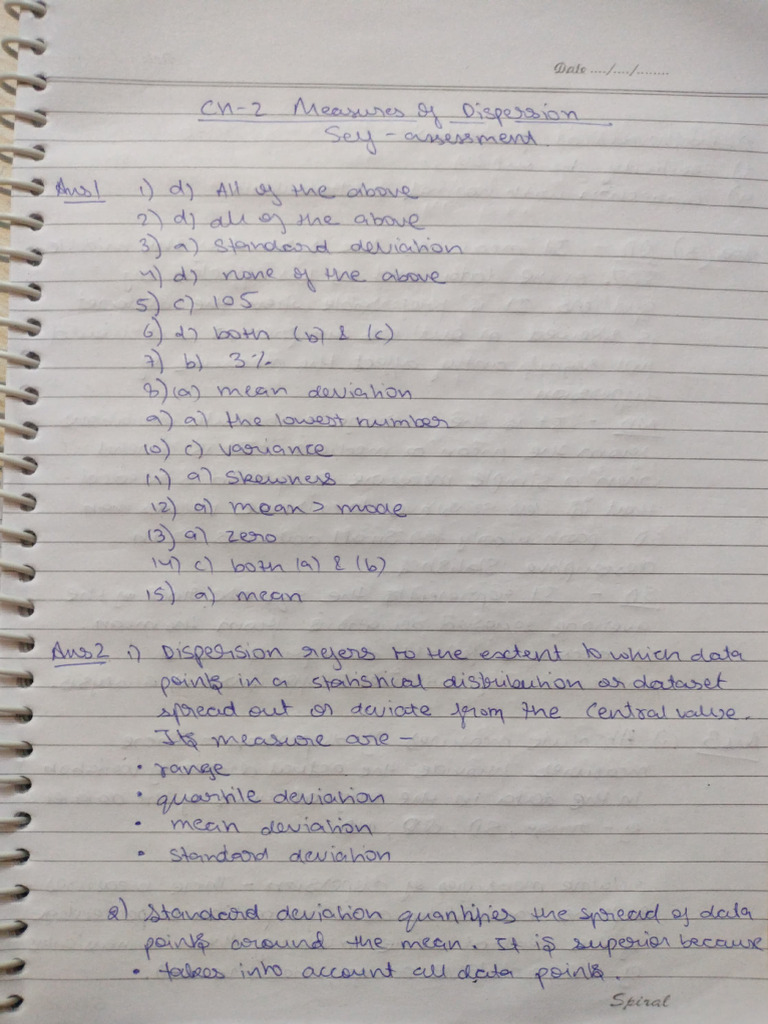 Date ..../..../........
Ch-2 Measures of Dispersion
Self-assessment
Ans1 1) d) All of the above
2) d) all of the above
3) a) standard deviation
4) d) none of the above
5) c) 105
6) d) both (b) & (c)
7) b) 3%
8) (a) mean deviation
9) a) the lowest number
10) c) variance
11) a) skewness
12) a) mean > mode
13) a) zero
14) c) both (a) & (b)
15) a) mean
Ans2 1) Dispersion refers to the extent to which data
points in a statistical distribution or dataset
spread out or deviate from the central value.
Its measure are -
• range
• quartile deviation
• mean deviation
• standard deviation
2) Standard deviation quantifies the spread of data
points around the mean. It is superior because
• takes into account all data points.
Spiral